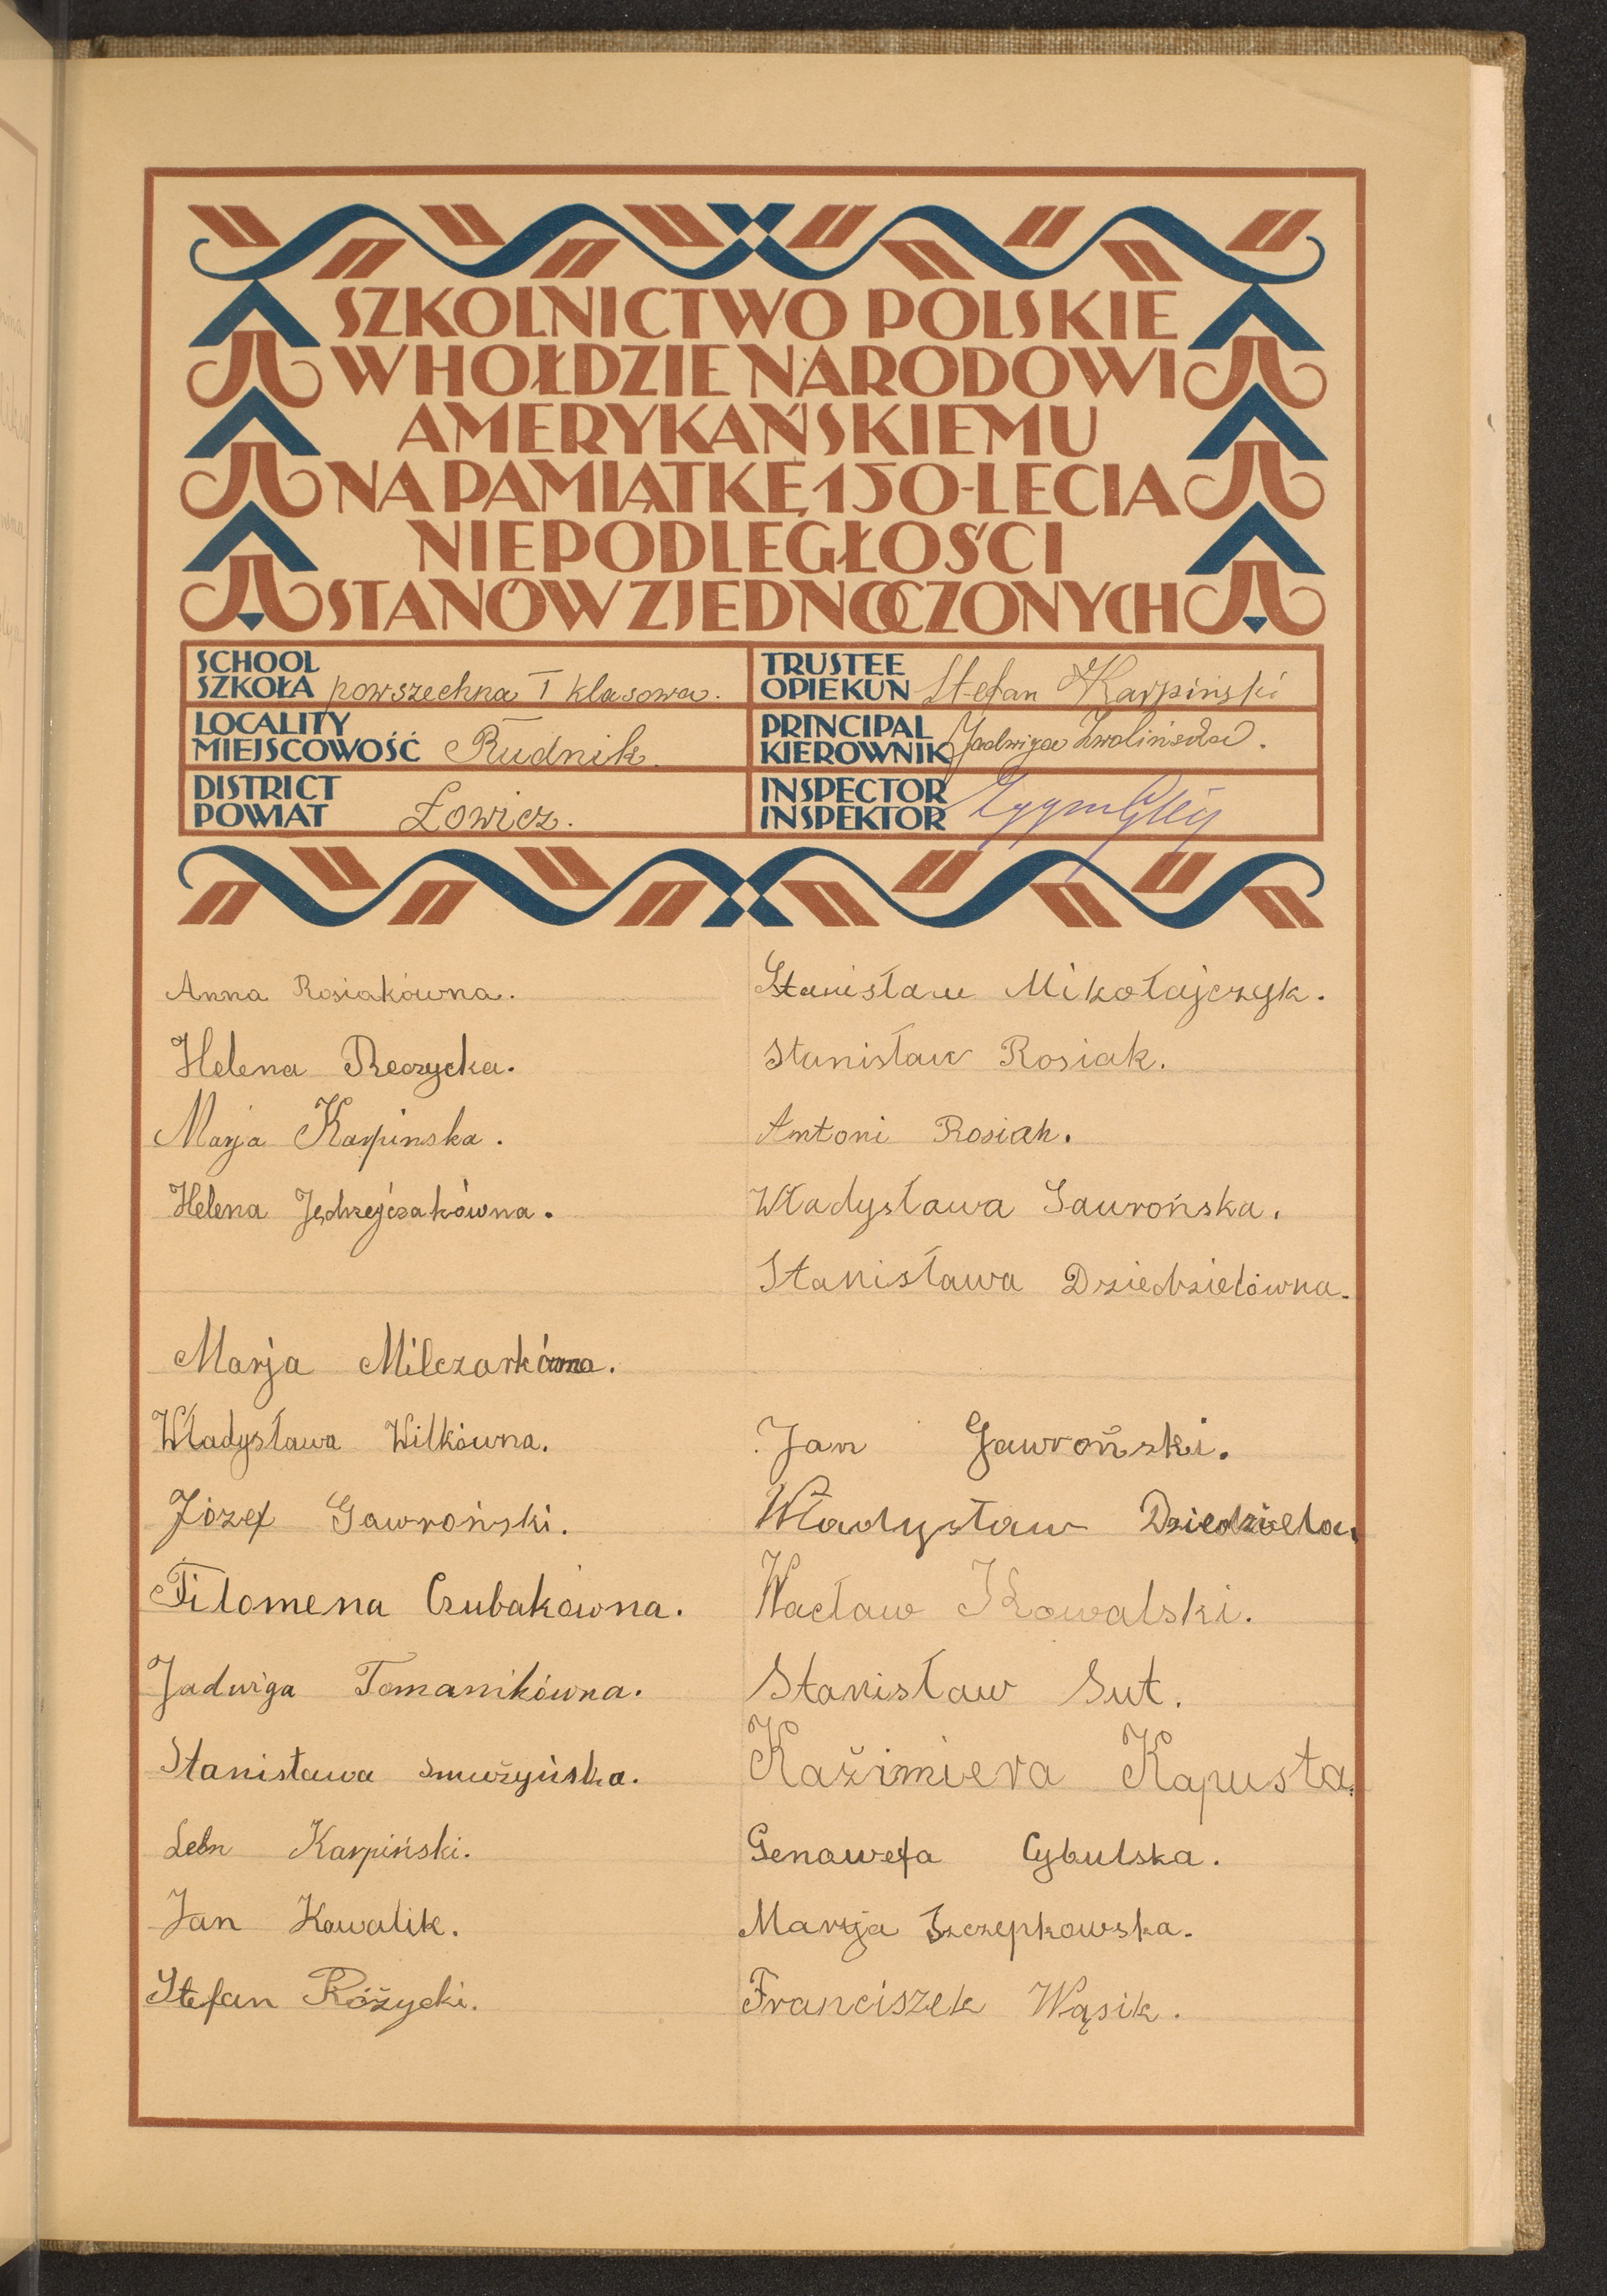 SZKOLNICTWO POLSKIE
W HOŁDZIE NARODOWI
AMERYKAŃSKIEMU
NA PAMIĄTKĘ 150-LECIA
NIEPODLEGŁOŚCI
STANÓW ZJEDNOCZONYCH
SCHOOL
SZKOŁA powszechna I klasowa.
LOCALITY
MIEJSCOWOŚĆ Rudnik.
DISTRICT
POWIAT Łowicz.
TRUSTEE
OPIEKUN Stefan Karpiński
PRINCIPAL
KIEROWNIK Jadwiga Zwolińska.
INSPECTOR
INSPEKTOR
Anna Rosiakówna.
Helena Reczycka.
Marja Karpinska.
Helena Jędrzejczakówna.
Marja Milczarkówna.
Władysława Wilkówna.
Józef Gawroński.
Filomena Czubakówna.
Jadwiga Tomanikówna.
Stanisława
Leon Karpiński.
Jan Kowalik.
Stefan Różycki.
Stanisław Mikołajczyk.
Stanisław Rosiak.
Antoni Rosiak.
Władysława Gawrońska.
Stanisława Dziedzielówna.
Jan Gawroński.
Władysław Dziedziela.
Wacław Kowalski.
Stanisław Sut.
Kaźimiera Kapusta.
Genowefa Cybulska.
Marja Szczepkowska.
Franciszek Wąsik.